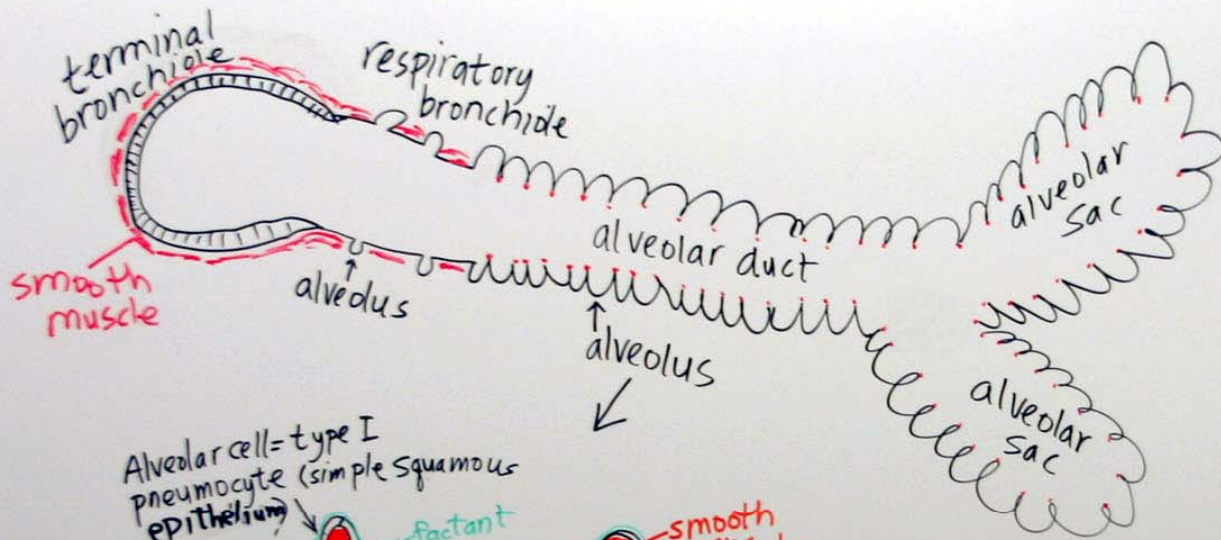 terminal
bronchiole
respiratory
bronchiole
alveolar
sac
alveolar duct
smooth
muscle
alveolus
alveolus
alveolar
sac
Alveolar cell= type I
pneumocyte (simple squamous
epithelium)
factant
smooth